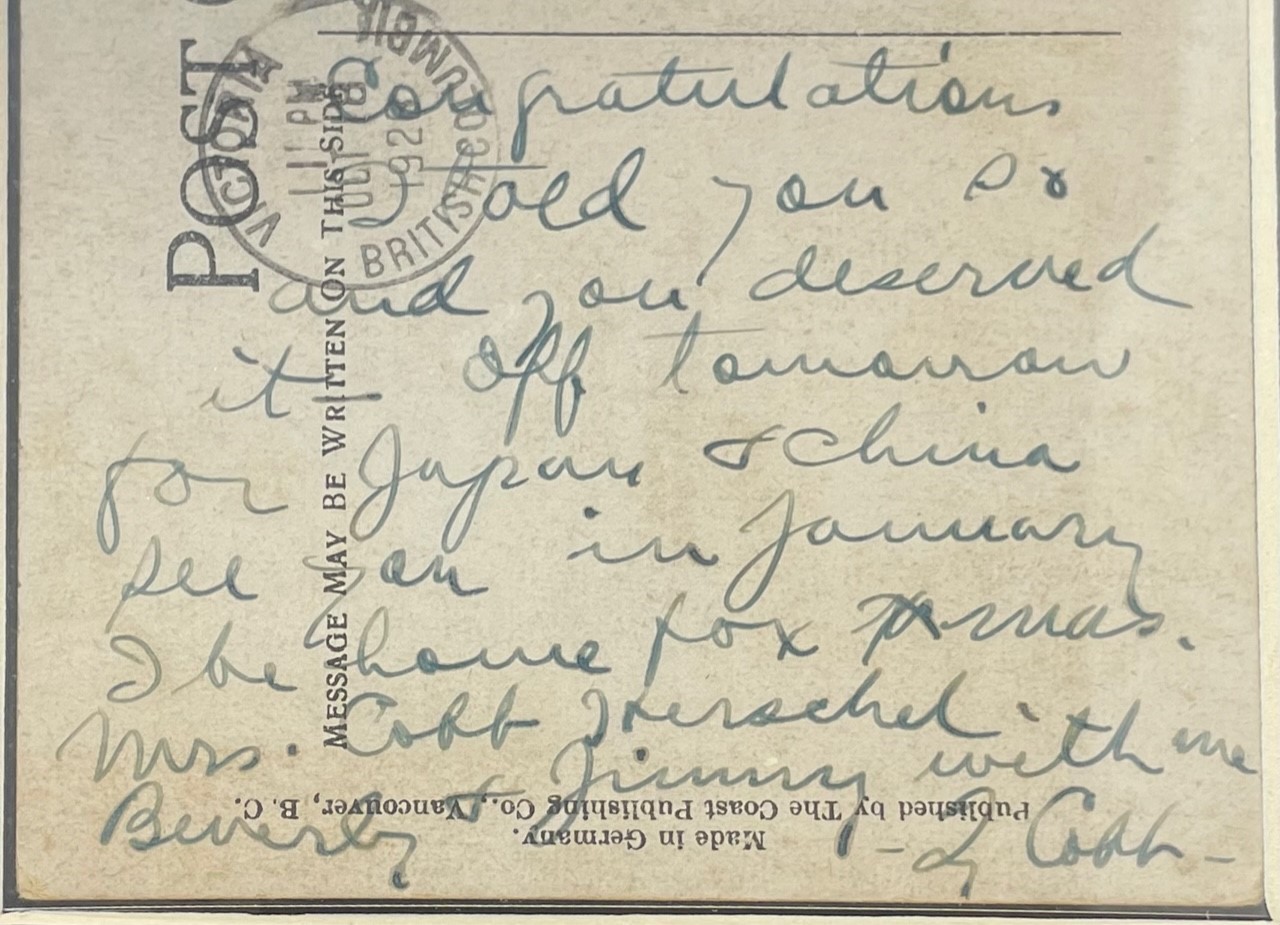 Congratulations
I told you so
and you deserved
it! Off tomorrow
for Japan & China
see you in January
I be home for Xmas.
Mrs. Cobb Herschel
Beverly & Jimmy with me
- Ty Cobb -
POST
MESSAGE MAY BE WRITTEN ON THIS SIDE
VICTORIA
11 PM
OCT 18
192
BRITISH COLUMBIA
Published by The Coast Publishing Co., Vancouver, B. C.
Made in Germany.